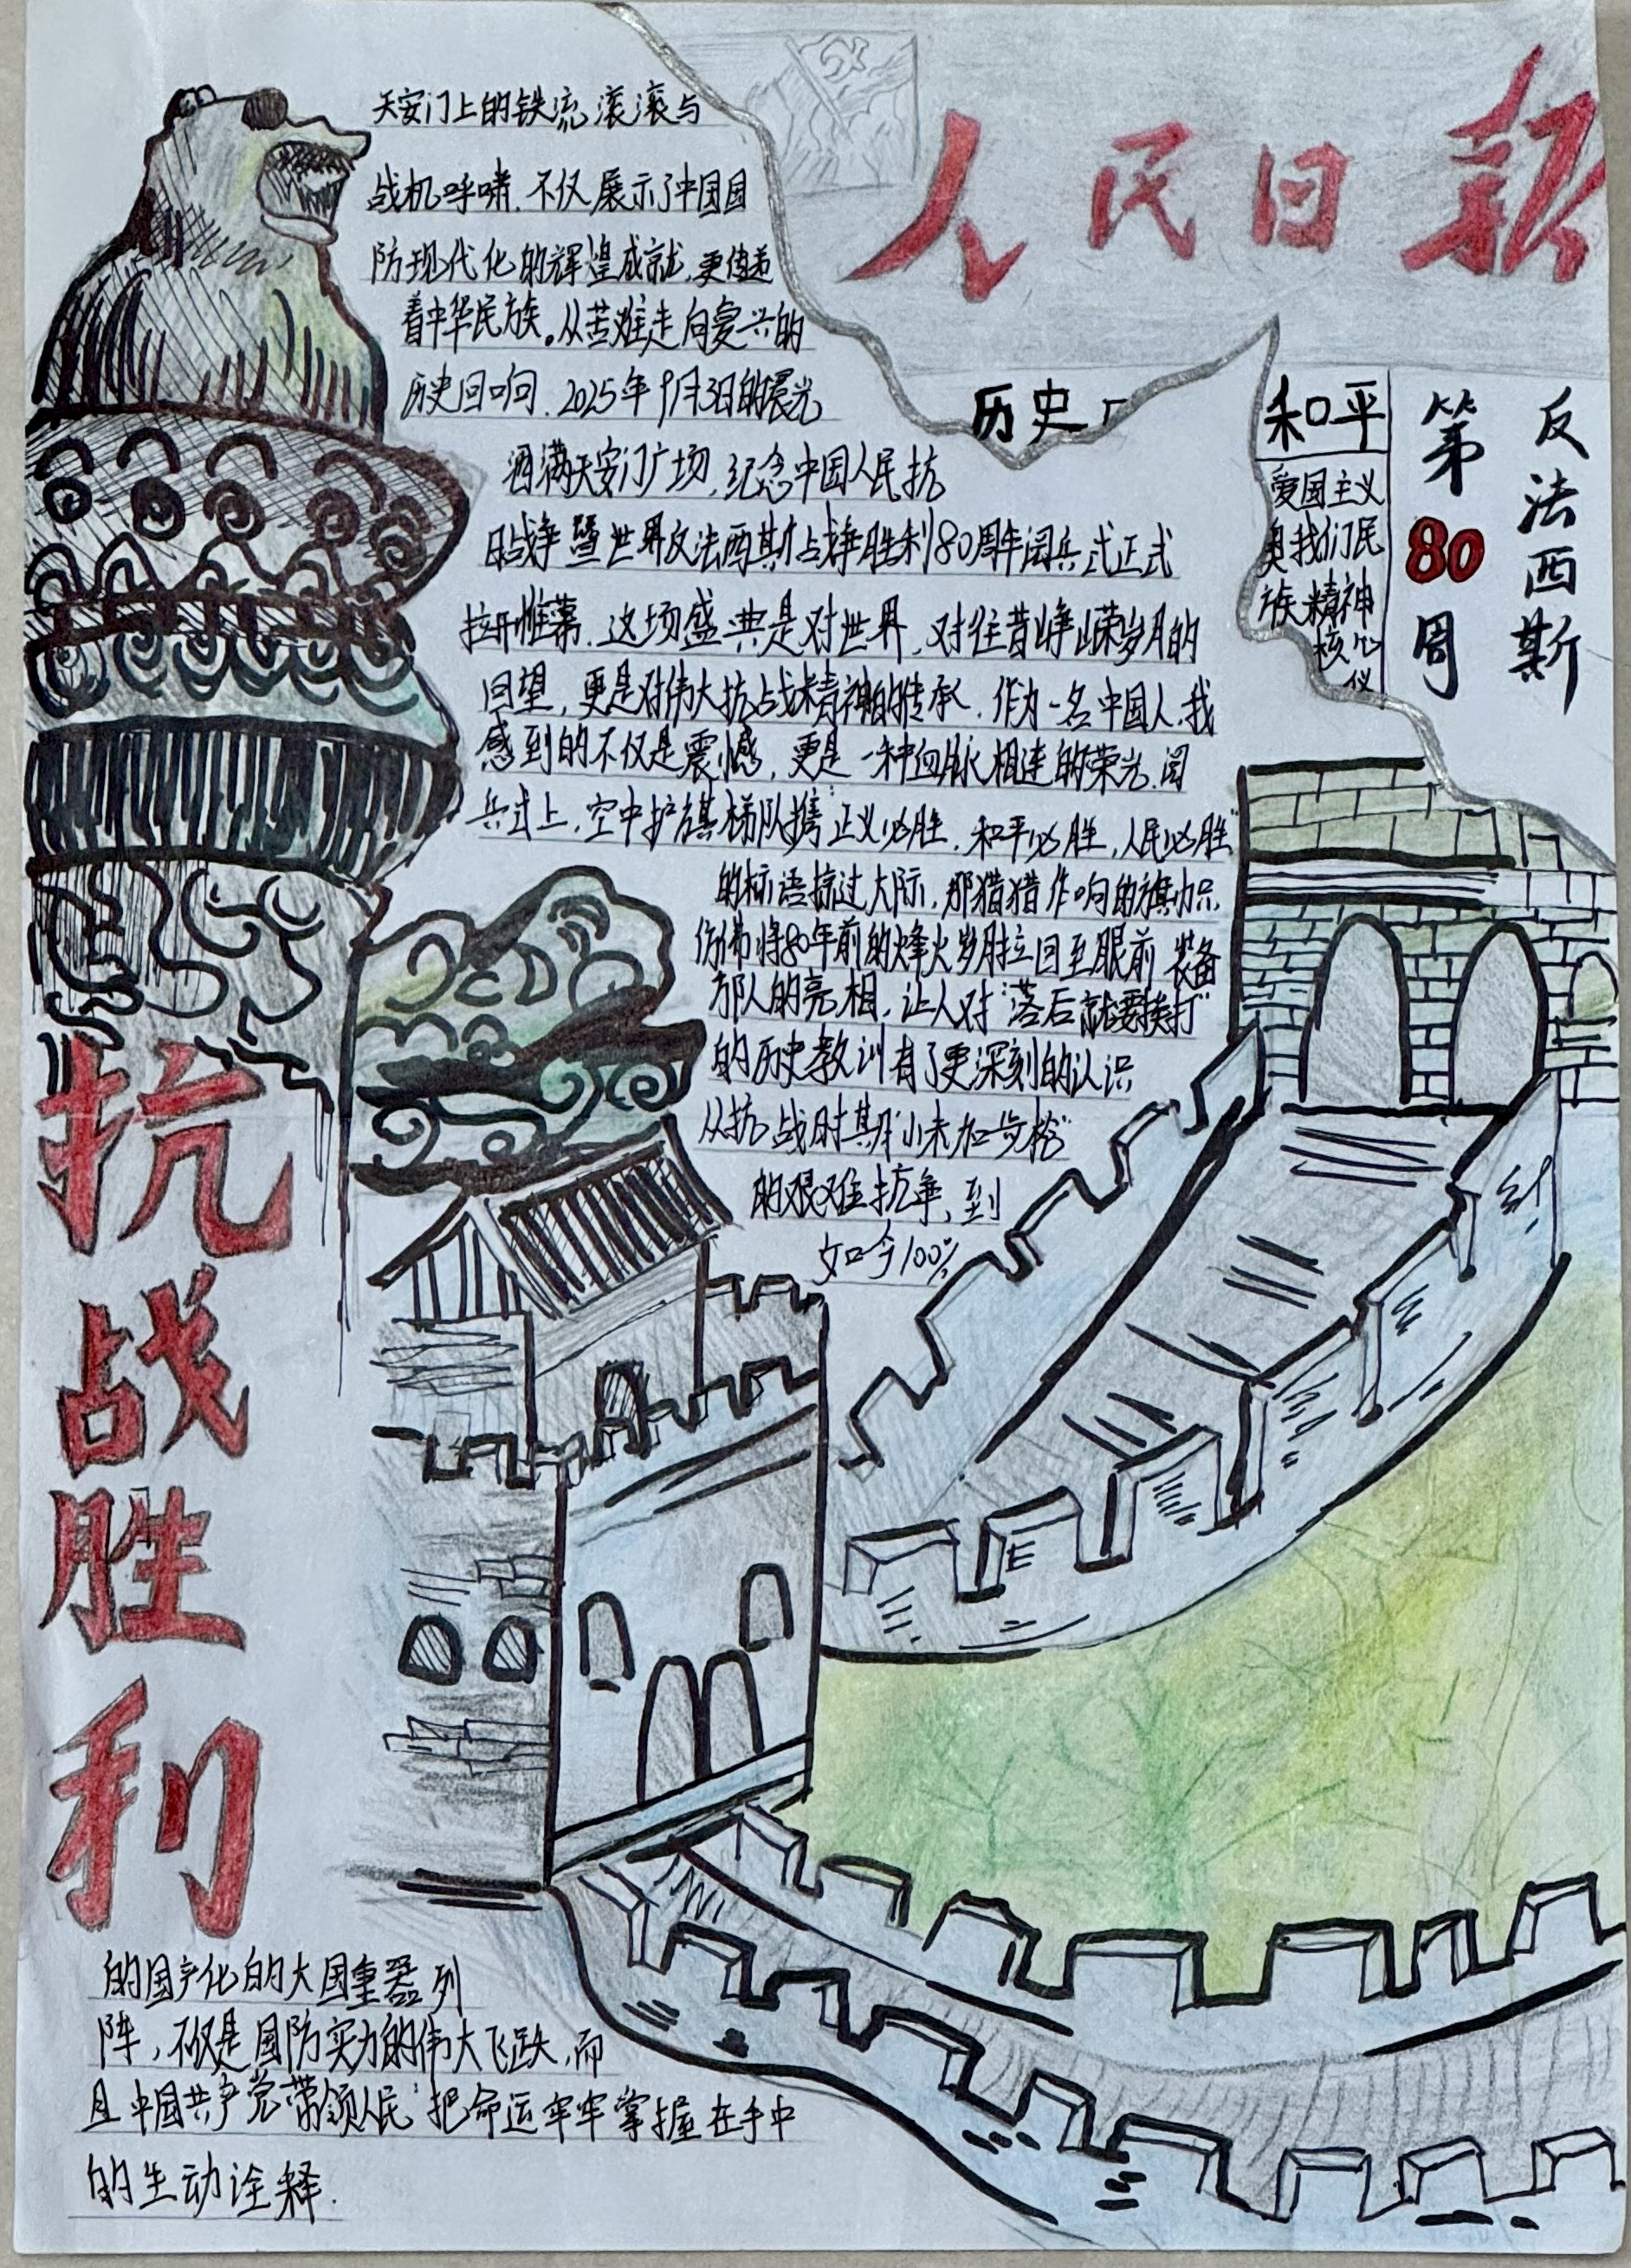 人民日报
天安门上的铁流滚滚与
战机呼啸.不仅展示了中国国
防现代化的辉煌成就,更传递
着中华民族。从苦难走向复兴的
历史回响.2025年9月3日的晨光
洒满天安门广场,纪念中国人民抗
日战争暨世界反法西斯战争胜利80周年阅兵式正式
拉开帷幕.这场盛典是对世界,对往昔峥嵘岁月的
回望,更是对伟大抗战精神的传承.作为一名中国人,我
感到的不仅是震憾,更是一种血脉相连的荣光.阅
兵式上,空中护旗梯队携"正义必胜,和平必胜,人民必胜"
的标语掠过大际,那猎猎作响的旗帜
仿佛将80年前的烽火岁月拉回至眼前 装备
部队的亮相,让人对"落后就要挨打"
的历史教训有了更深刻的认识
从抗战时期"小米加步枪"
的艰难抗争,到
如今100%
的国产化的大国重器列
阵,不仅是国防实力的伟大飞跃,而
且中国共产党带领人民"把命运牢牢掌握在手中
的生动诠释.
历史
和平
爱国主义
是我们民
族精神
核心
仪
第80周
反法西斯
抗战胜利